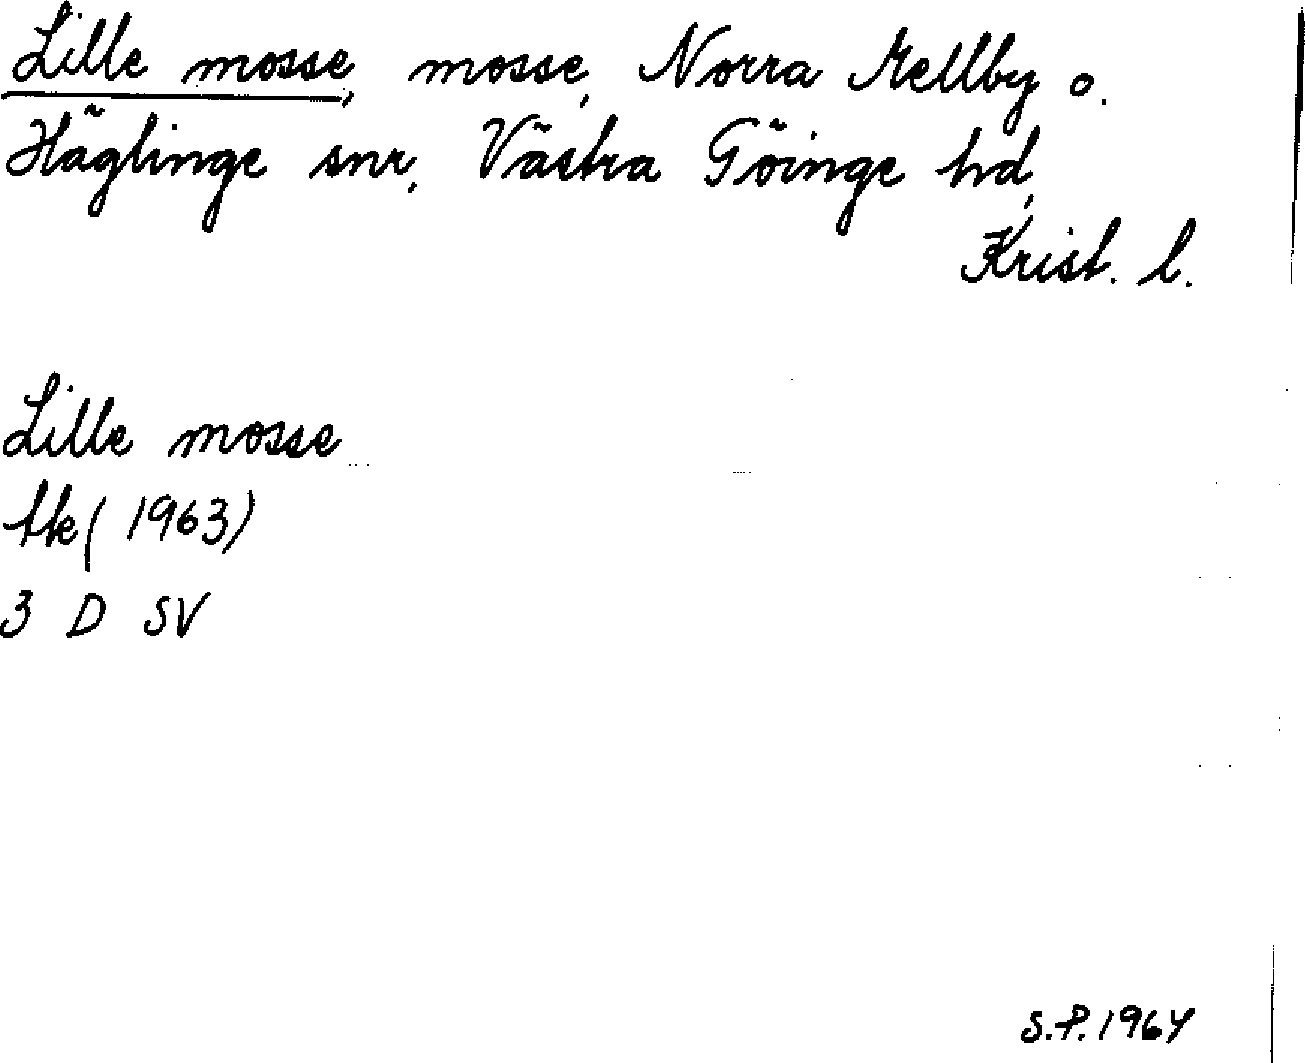 Lille mosse, mosse, Norra Mellby o.
Häglinge snr, Västra Göinge hd,
Krist. l.
Lille mosse
tk (1963)
3 D SV
S.P. 1964